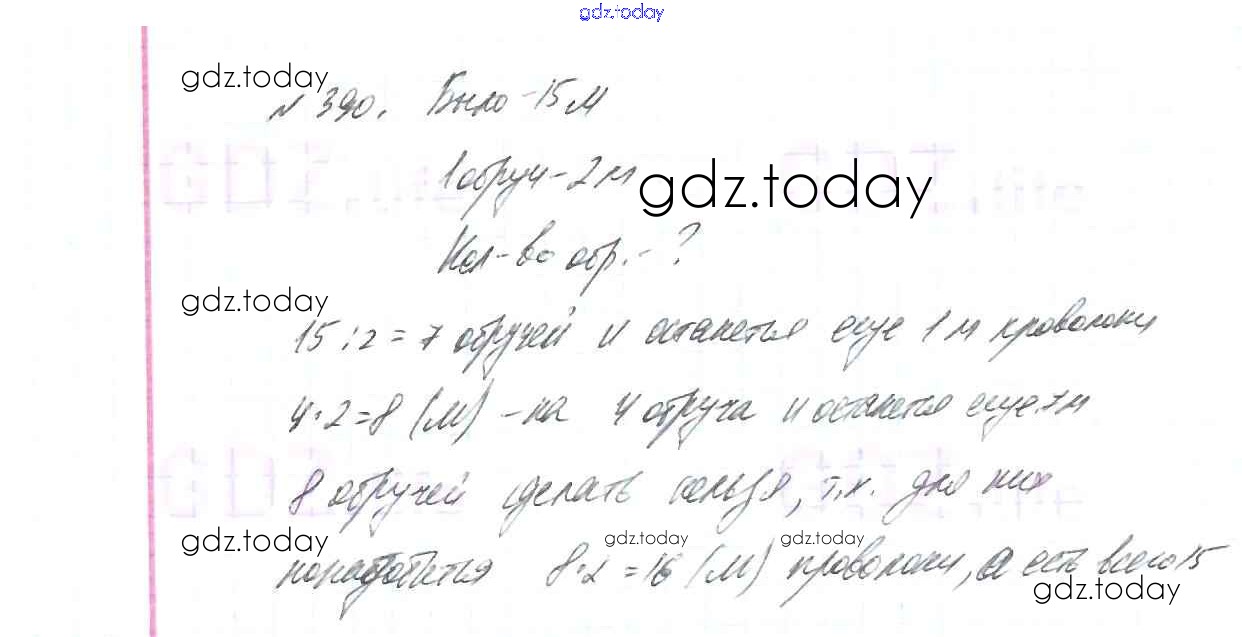 gdz.today
gdz.today
№ 390. Было - 15 м
1 обруч - 2 м
gdz.today
Кол-во обр. - ?
gdz.today
15 : 2 = 7 обручей и останется еще 1 м проволоки
4·2=8 (м) - на 4 обруча и останется еще 7 м
8 обручей сделать нельзя, т.к. для них
gdz.today gdz.today gdz.today
понадобится 8·2 = 16 (м) проволоки, а есть всего 15
gdz.today